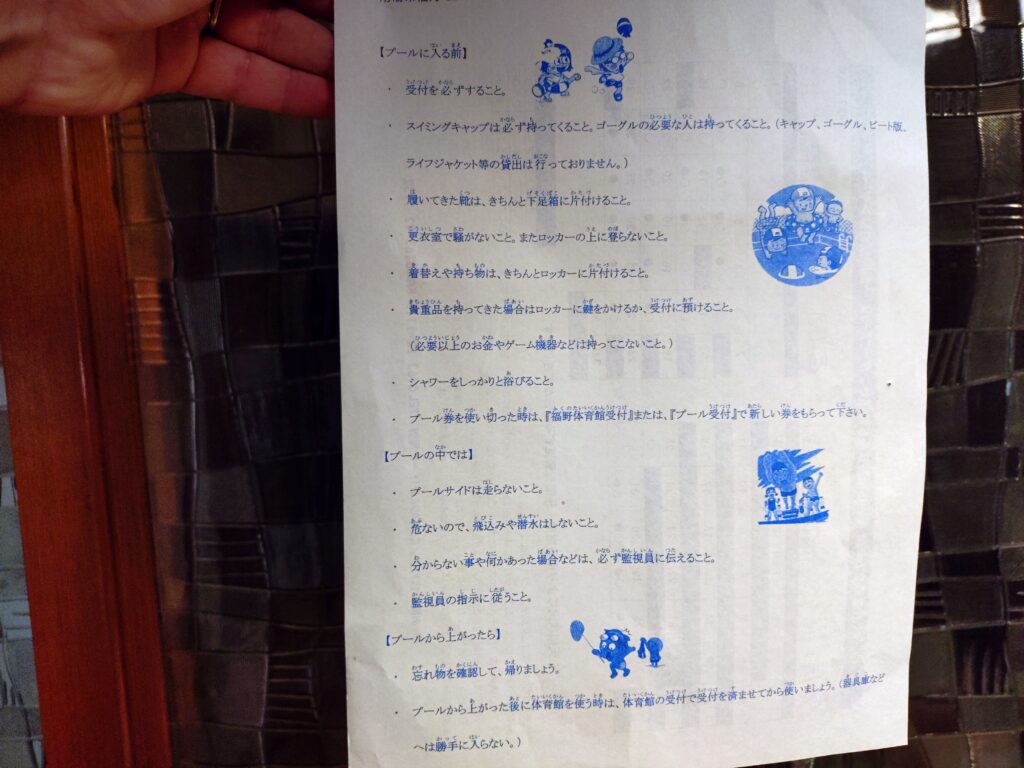 【プールに入る前】
・ 受付を必ずすること。
・ スイミングキャップは必ず持ってくること。ゴーグルの必要な人は持ってくること。(キャップ、ゴーグル、ビート版、
ライフジャケット等の貸出は行っておりません。)
・ 履いてきた靴は、きちんと下足箱に片付けること。
・ 更衣室で騒がないこと。またロッカーの上に登らないこと。
・ 着替えや持ち物は、きちんとロッカーに片付けること。
・ 貴重品を持ってきた場合はロッカーに鍵をかけるか、受付に預けること。
(必要以上のお金やゲーム機器などは持ってこないこと。)
・ シャワーをしっかりと浴びること。
・ プール券を使い切った時は、『福野体育館受付』または、『プール受付』で新しい券をもらって下さい。
【プールの中では】
・ プールサイドは走らないこと。
・ 危ないので、飛込みや潜水はしないこと。
・ 分からない事や何かあった場合などは、必ず監視員に伝えること。
・ 監視員の指示に従うこと。
【プールから上がったら】
・ 忘れ物を確認して、帰りましょう。
・ プールから上がった後に体育館を使う時は、体育館の受付で受付を済ませてから使いましょう。(器具庫など
へは勝手に入らない。)